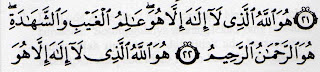 ﴿٢١﴾ هُوَ ٱللَّهُ ٱلَّذِى لَآ إِلَٰهَ إِلَّا هُوَ ۖ عَٰلِمُ ٱلْغَيْبِ وَٱلشَّهَٰدَةِ ۖ
هُوَ ٱلرَّحْمَٰنُ ٱلرَّحِيمُ ﴿٢٢﴾ هُوَ ٱللَّهُ ٱلَّذِى لَآ إِلَٰهَ إِلَّا هُوَ